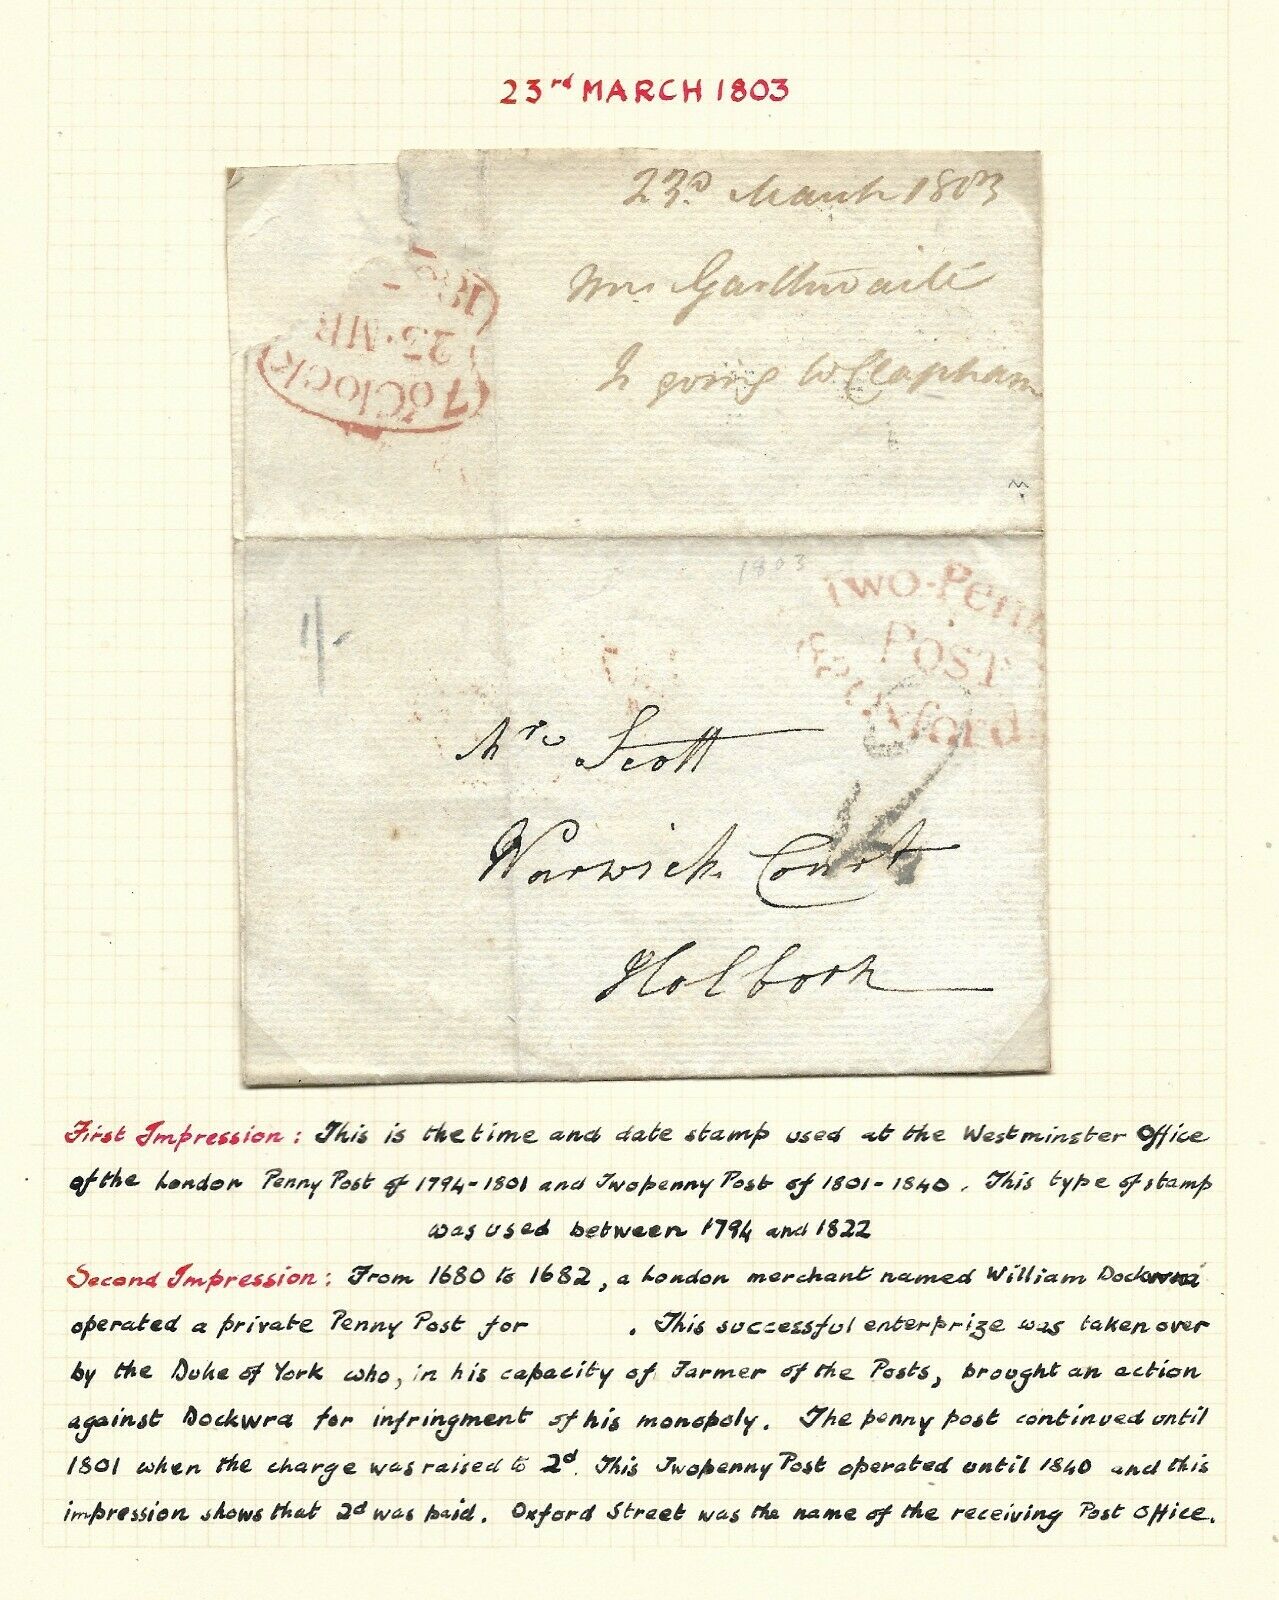 23rd MARCH 1803
23d March 1803
Mrs Garthwaite
Is going to Clapham
7 o'Clock
23·MR
180
1803
Two-Penn
POST
Oxford
1/-
Mrs Scott
Warwick Court
Holborn
First Impression: This is the time and date stamp used at the Westminster Office
of the London Penny Post of 1794-1801 and Twopenny Post of 1801-1840. This type of stamp
was used between 1794 and 1822
Second Impression: From 1680 to 1682, a London merchant named William Dockwra
operated a private Penny Post for . This successful enterprize was taken over
by the Duke of York who, in his capacity of Farmer of the Posts, brought an action
against Dockwra for infringment of his monopoly. The penny post continued until
1801 when the charge was raised to 2d. This Twopenny Post operated until 1840 and this
impression shows that 2d was paid. Oxford Street was the name of the receiving Post Office.